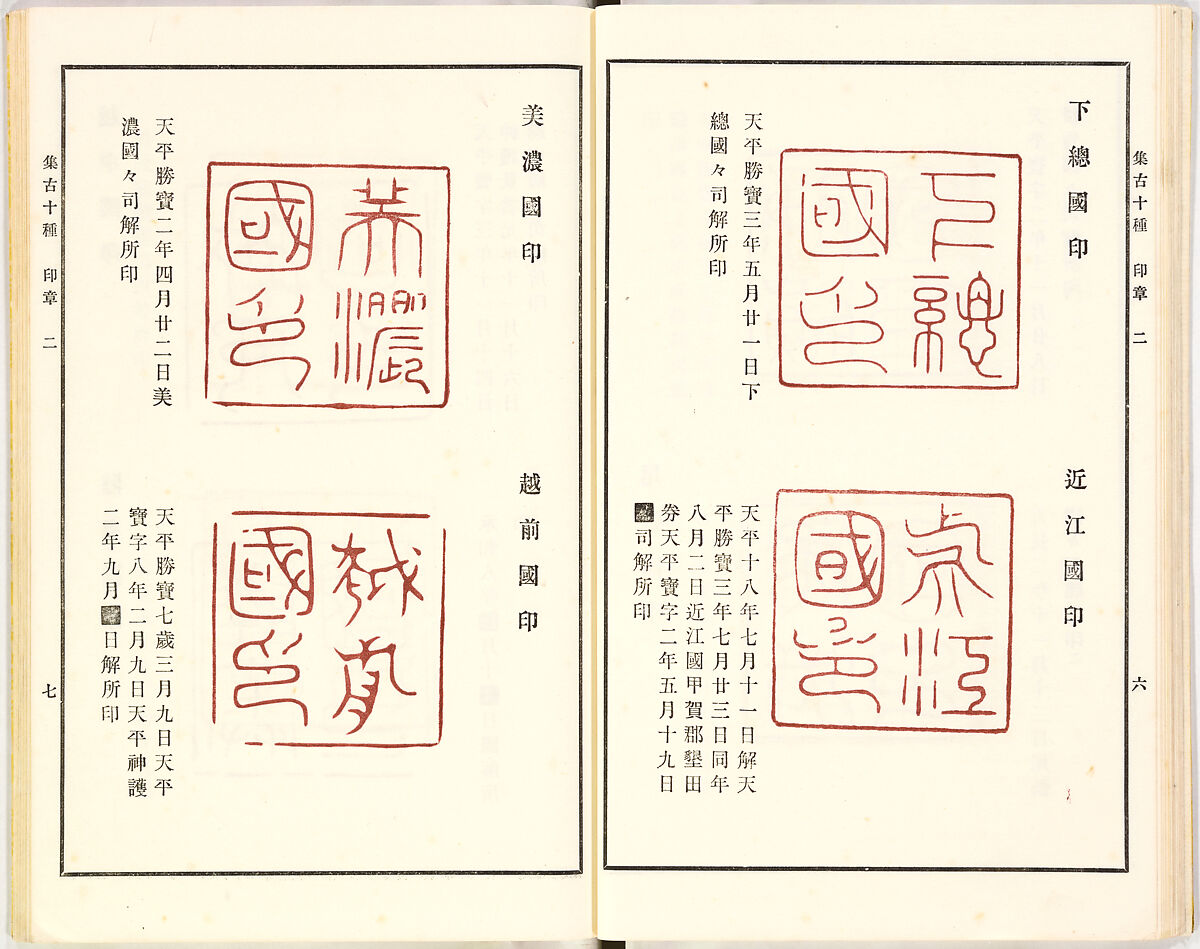 集古十種 印章 二
六
下總國印
下總
國印
天平勝寶三年五月廿一日下
總國々司解所印
近江國印
近江
國印
天平十八年七月十一日解天
平勝寶三年七月廿三日同年
八月二日近江國甲賀郡墾田
券天平寶字二年五月十九日
司解所印
美濃國印
美濃
國印
天平勝寶二年四月廿二日美
濃國々司解所印
越前國印
越前
國印
天平勝寶七歲三月九日天平
寶字八年二月九日天平神護
二年九月日解所印
集古十種 印章 二
七